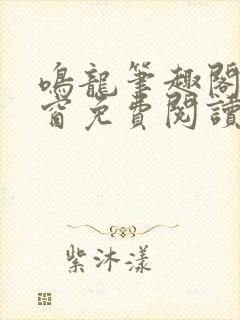 鳴龍筆趣閣
窗免費閱讀
紫沐漾